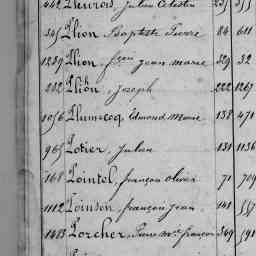 442 Pleurois, Julien Célestin 235 255
345 Plion Baptiste Pierre 84 611
1239 Plion, frçois Jean marie 329 32
282 Plihon, Joseph 222 1267
1056 Plumecoq, Edmond Marie 138 471
965 Potier, Julien 131 1136
168 Pointel, françois olivier 71 709
1112 Poinson, françois Jean 141 557
1483 Porcher, Pierre françois 349 591